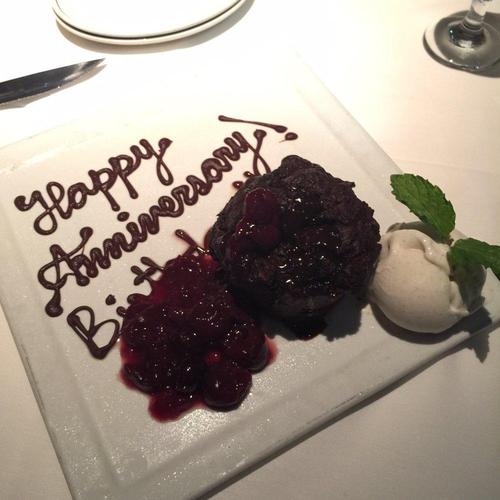 Happy
Anniversary!